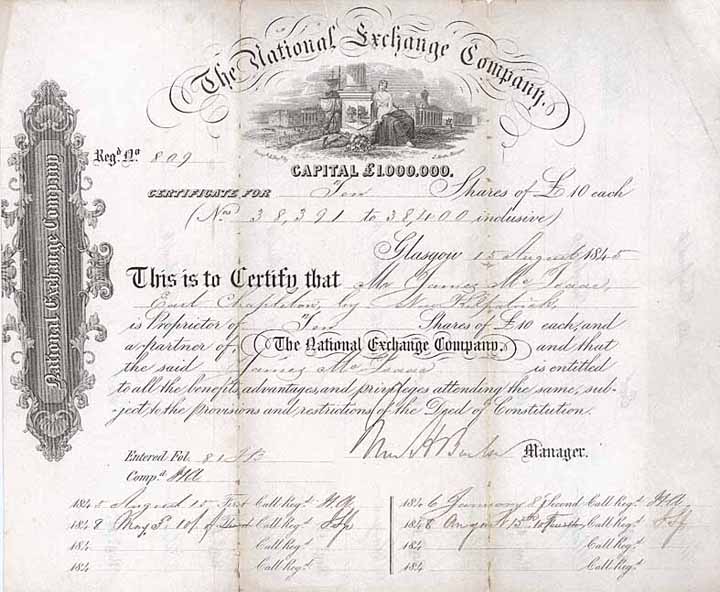 The National Exchange Company.
National Exchange Company
Regd. No. 809
CAPITAL £1.000.000.
CERTIFICATE FOR Ten Shares of £10 each
(Nos. 38,391 to 38,400 inclusive)
Glasgow 15 August 1845
This is to Certify that Mr. James Mc Isaac,
East Chapelton, by New
is Proprietor of Ten Shares of £10 each, and
a partner of The National Exchange Company. and that
the said James Mc Isaac is entitled
to all the benefits, advantages, and privileges attending the same, sub-
ject, to the provisions and restrictions of the Deed of Constitution.
Entered Fol. Manager.
Compd.
1845 August 15 First Call Regd.
1846 January 8 Second Call Regd.
1848 May 3. Call Regd.
1848 August 15th Fourth Call Regd.
184 Call Regd.
184 Call Regd.
184 Call Regd.
184 Call Regd.